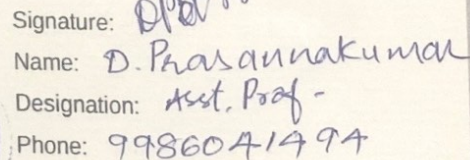 Signature:
Name: D. Prasannakumar
Designation: Asst. Prof -
Phone: 9986041494